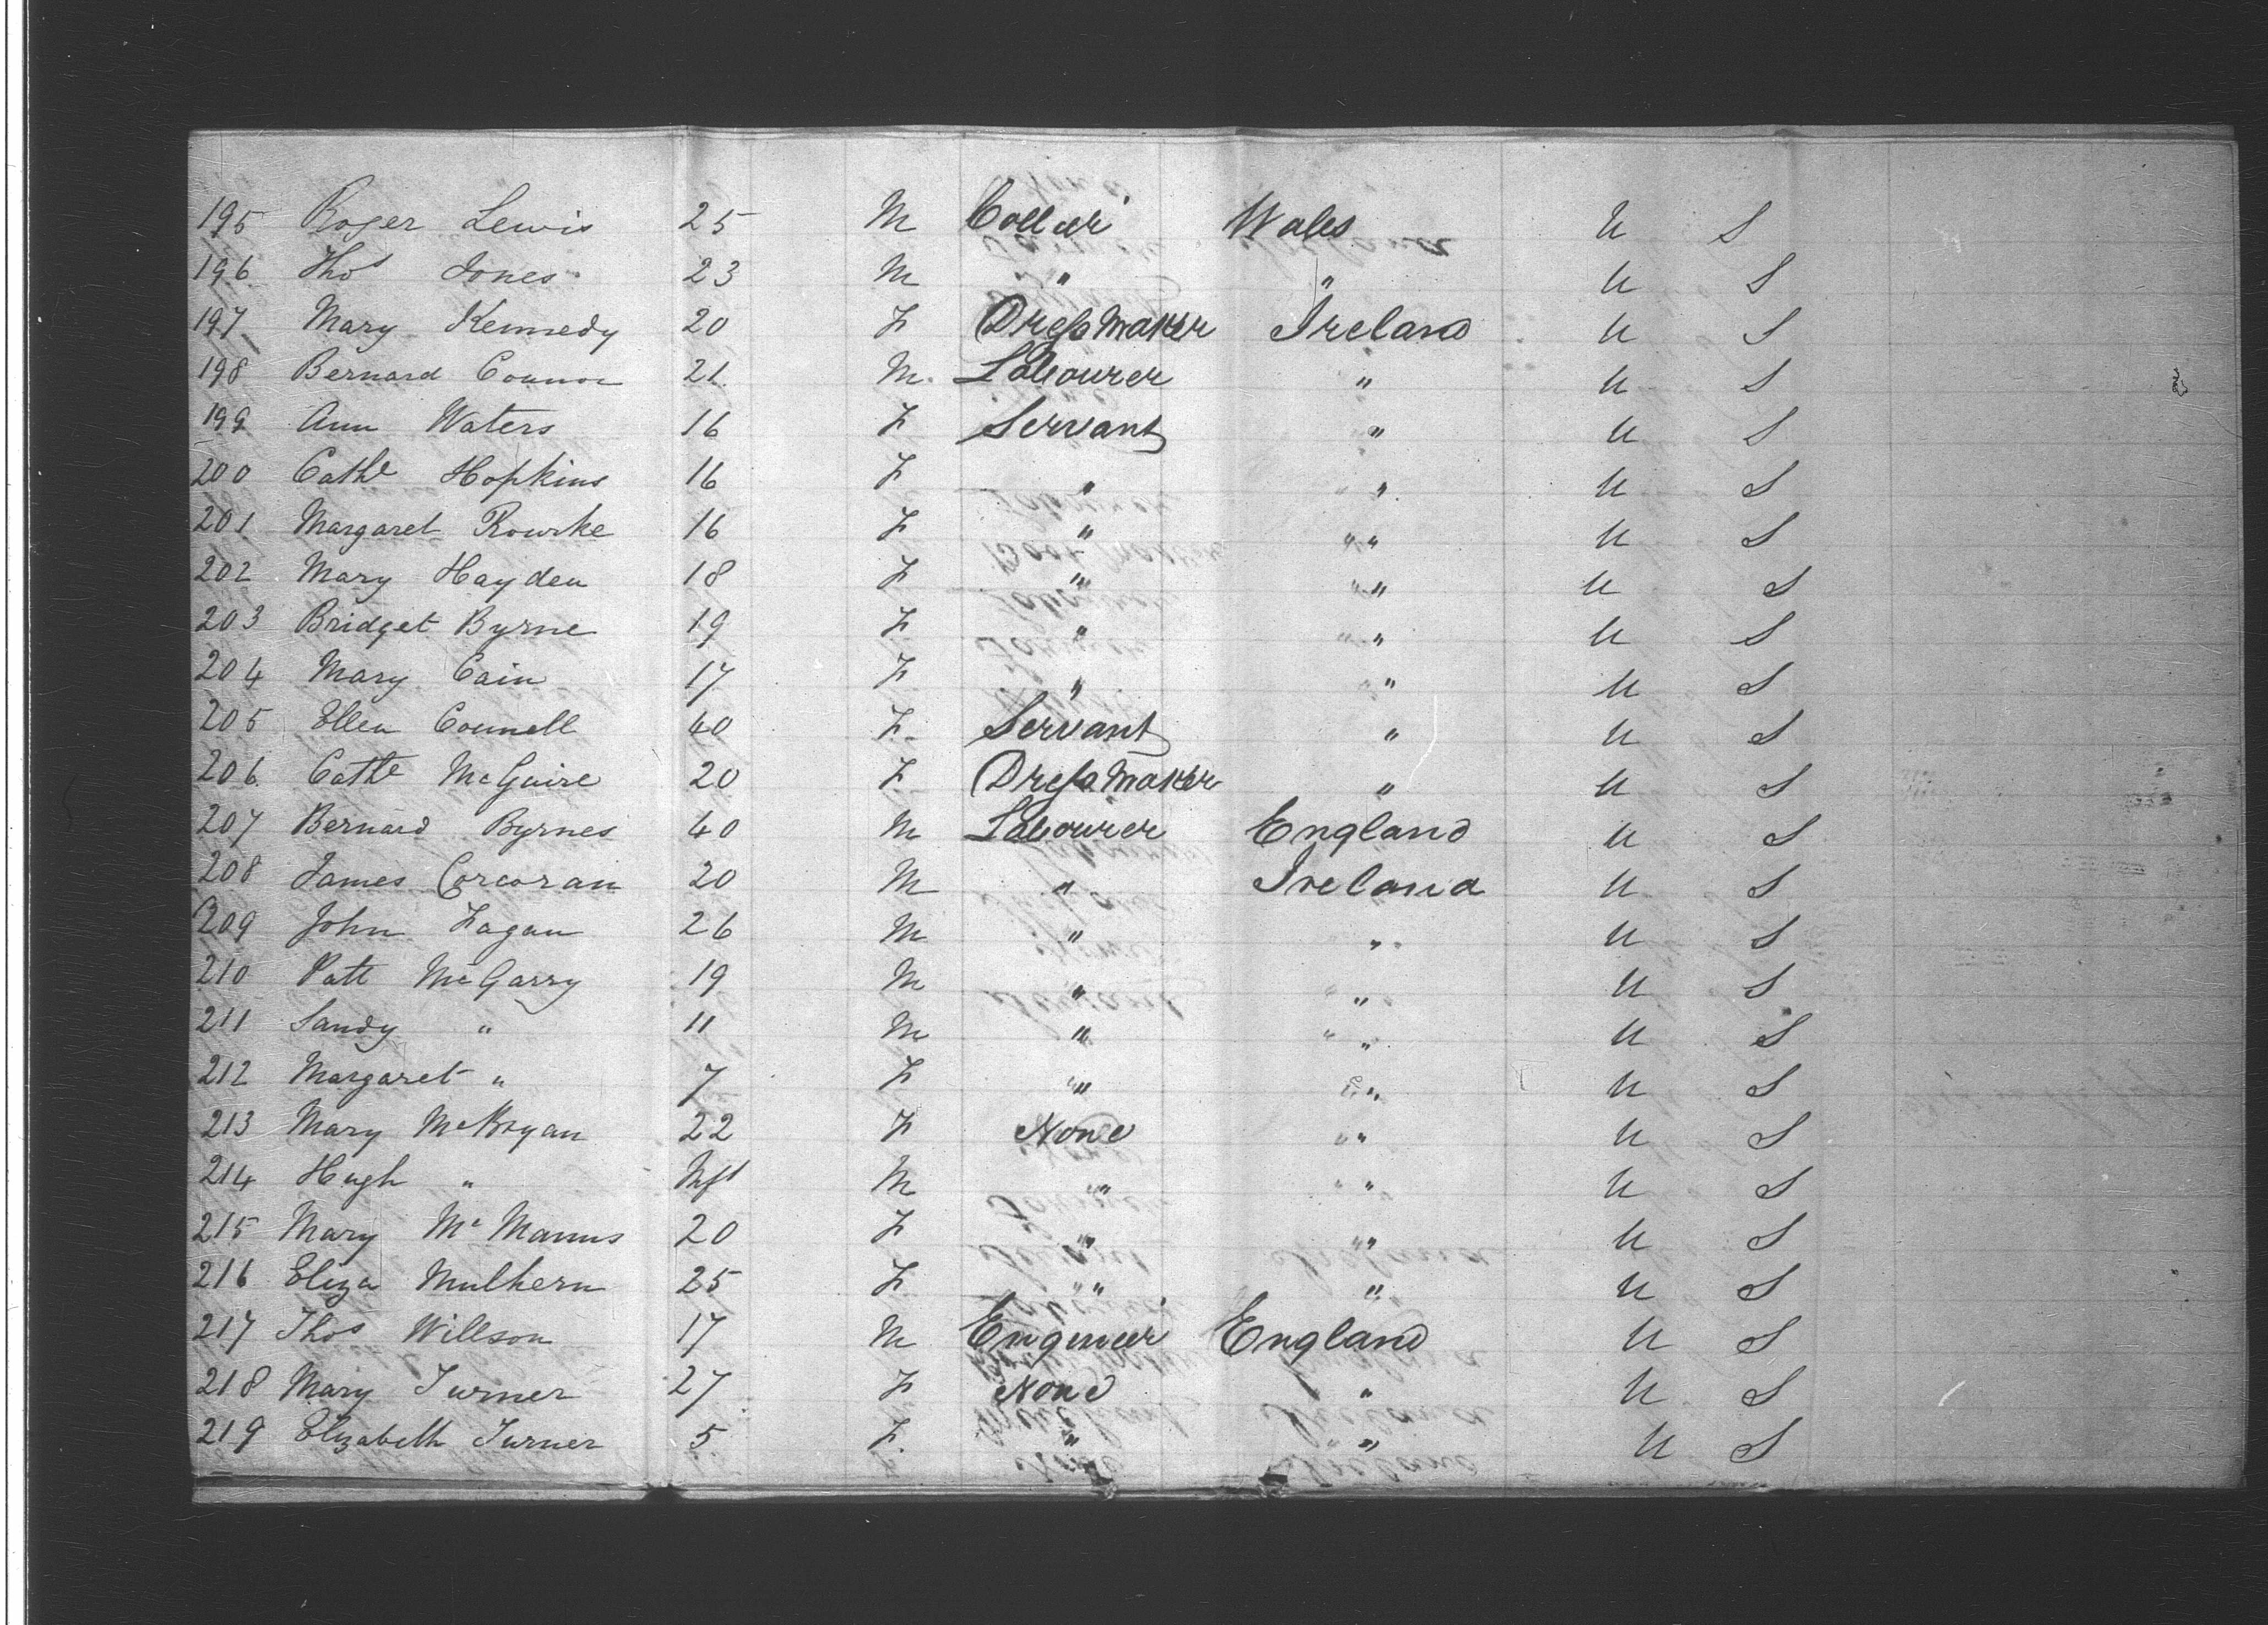 195 Roger Lewis 25 M Collier Wales U S
196 Thos Jones 23 M " " U S
197 Mary Kennedy 20 F Dress Maker Ireland U S
198 Bernard Connor 21 M. Labourer " U S
199 Ann Waters 16 F Servant " U S
200 Cathe Hopkins 16 F " " U S
201 Margaret Rourke 16 F " " U S
202 Mary Hayden 18 F " " U S
203 Bridget Byrne 19 F " " U S
204 Mary Cain 17 F " " U S
205 Ellen Connell 40 F Servant " U S
206 Cathe McGuire 20 F Dress Maker " U S
207 Bernard Byrnes 40 M Labourer England U S
208 James Corcoran 20 M " Ireland U S
209 John Fagan 26 M " " U S
210 Patt McGarry 19 M " " U S
211 Sandy " 11 M " " U S
212 Margaret " 7 F " " U S
213 Mary McBryan 22 F None " U S
214 Hugh " Inft M " " U S
215 Mary McManus 20 F " " U S
216 Eliza Mulhern 25 F " " U S
217 Thos Willson 17 M Engineer England U S
218 Mary Turner 27 F None " U S
219 Elizabeth Turner 5 F. " " U S